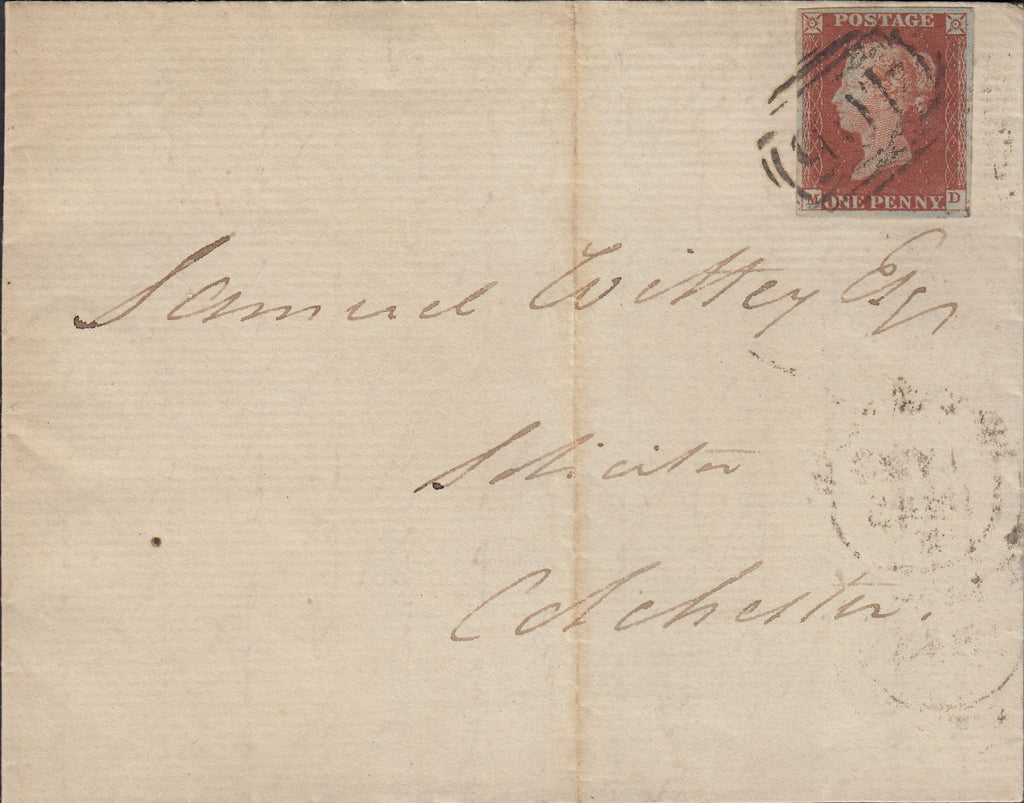 POSTAGE
M ONE PENNY D
Samuel Wittey Esqr
Solicitor
Colchester.